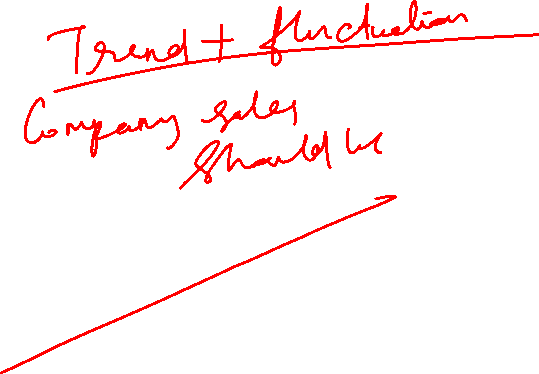 Trend + fluctuation
Company sales
should be